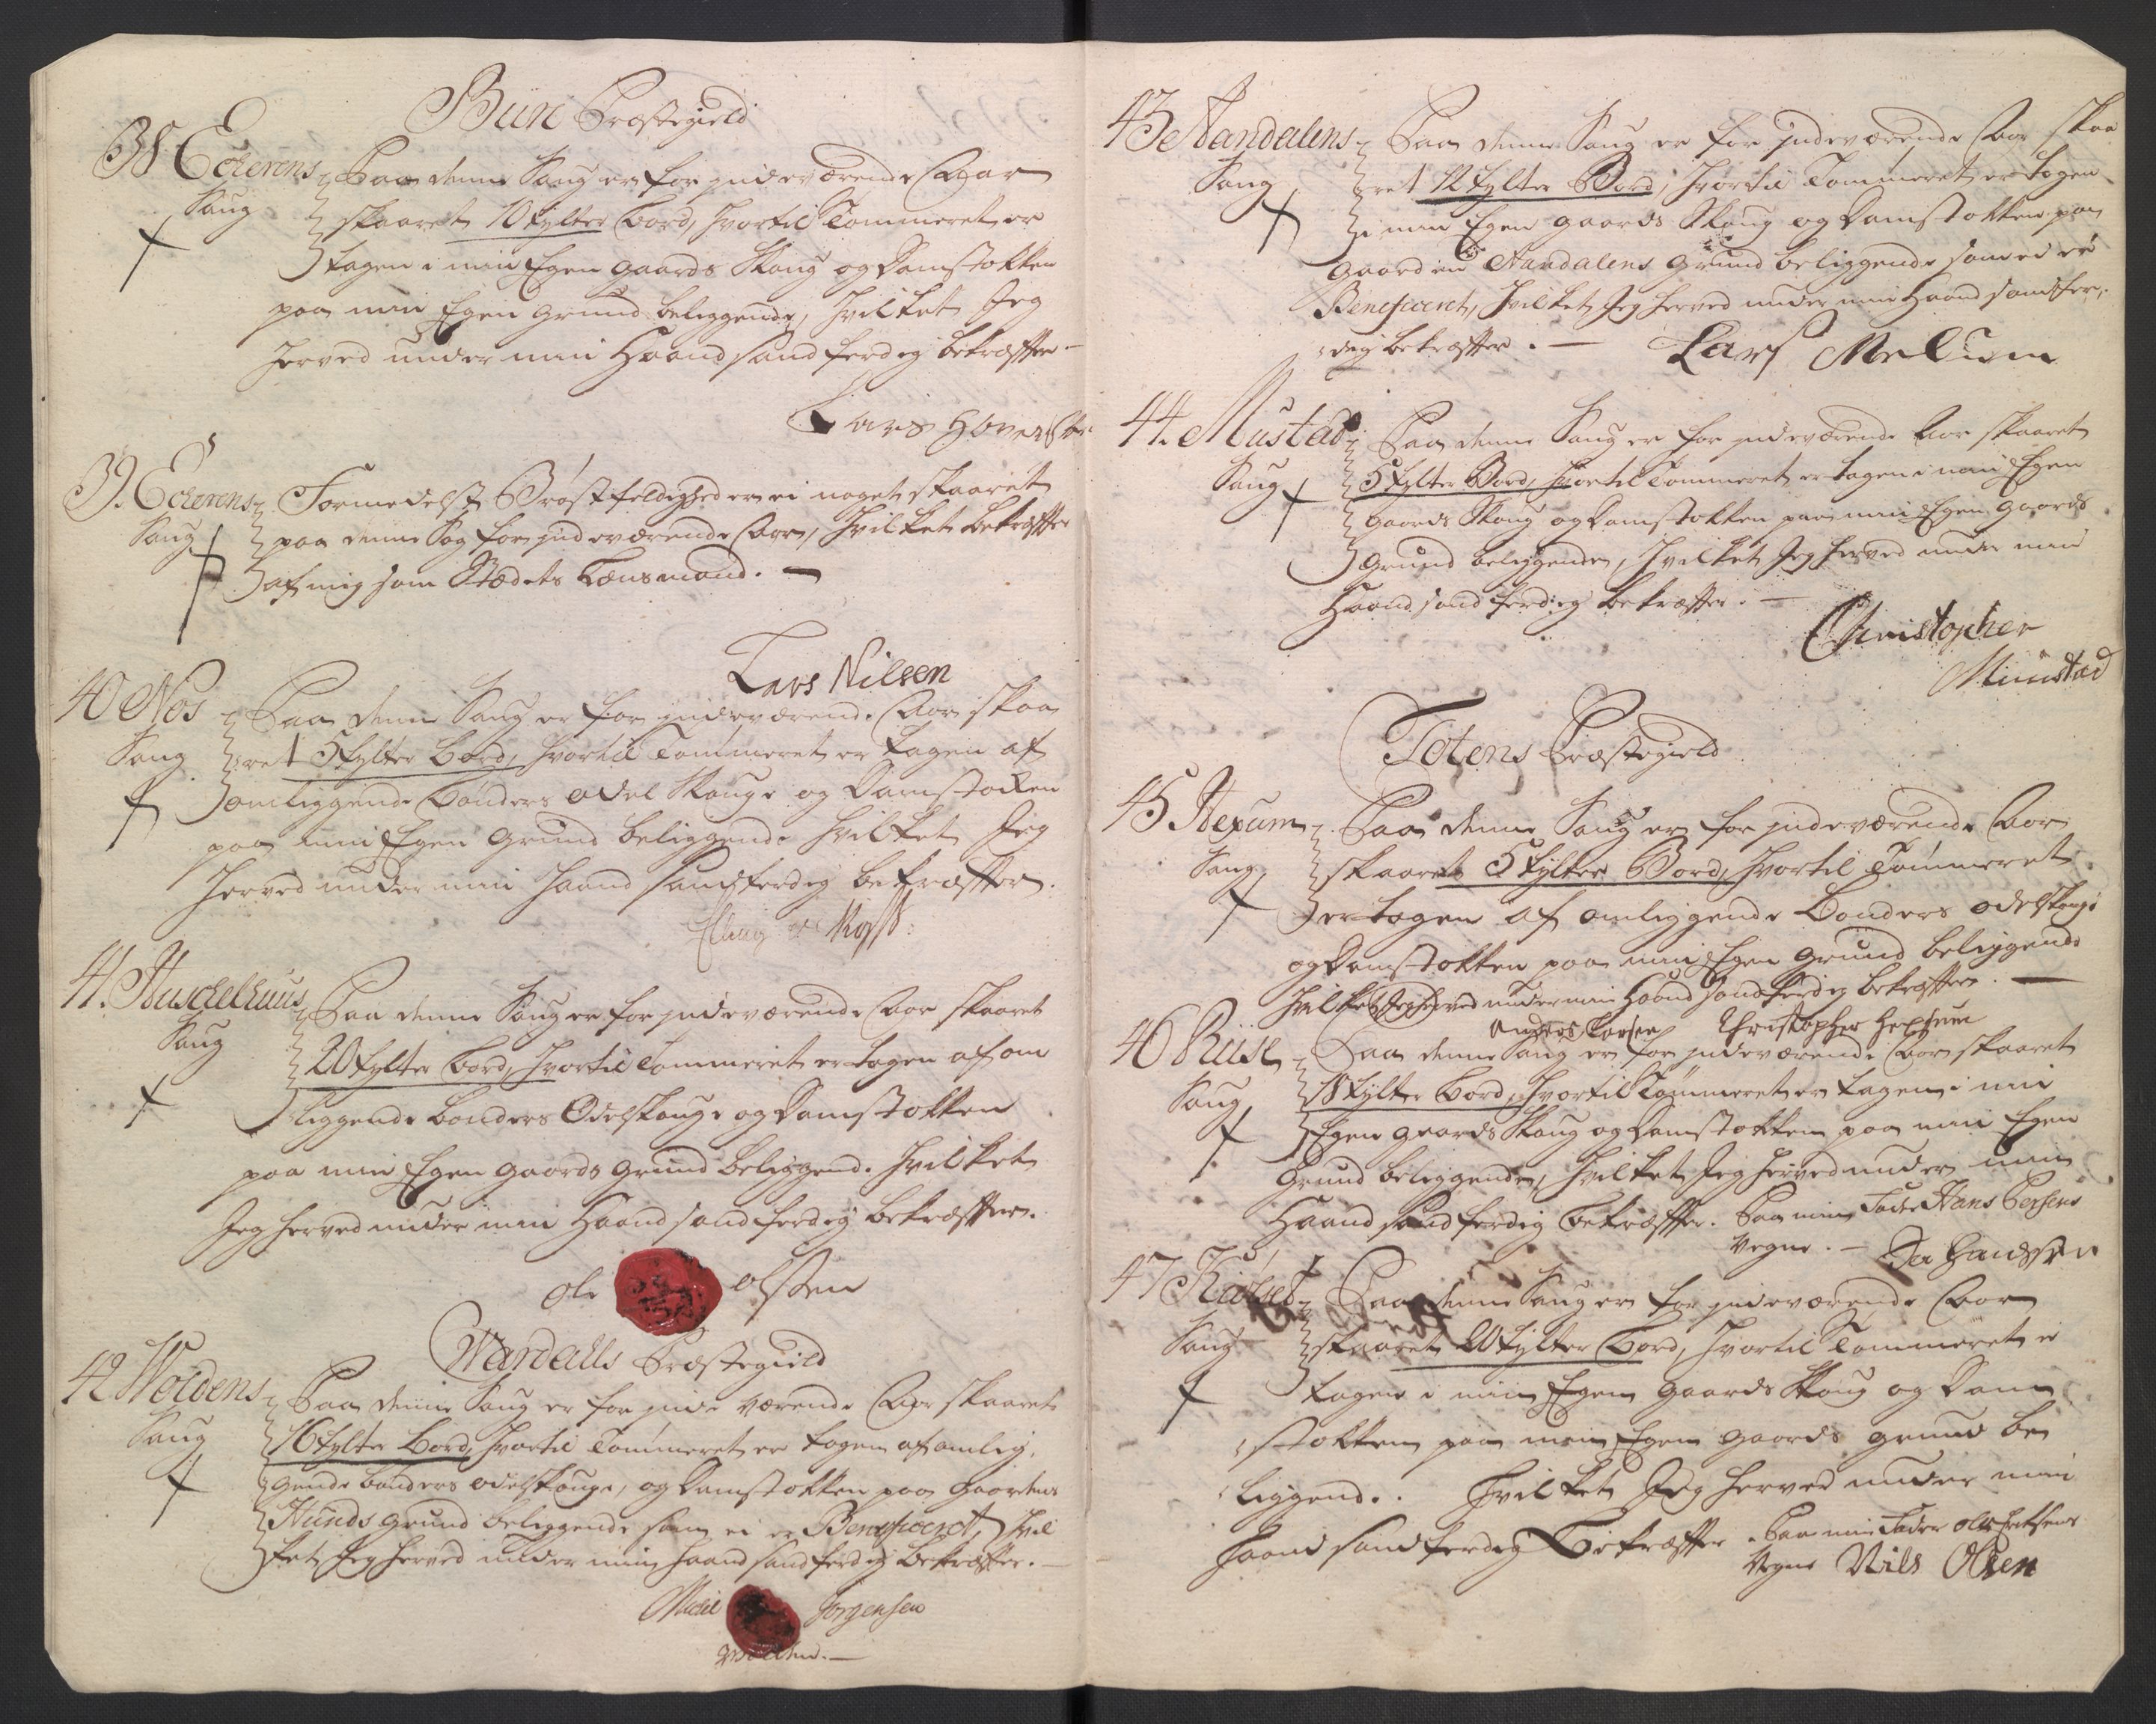 Biire Præstegield
38 Echerens Paa denne Saug er for indeværende Aar
Saug skaaret 10 tylter Bord, hvortil Tømmeret er
tagen i min Egen gaards Skoug og Damstokken
paa min Egen grund beliggende, hvilket Jeg
herved under min Haand sandferdig bekræffter
Lars
39. Echerens Formedelst Brøstfeldighed er ei noget skaaret
Saug paa denne Sag for indeværende Aar, hvilket bekræffter
af mig som Stædets Lænsmand.
Lars Nilsen
40 Nos Paa denne Saug er for indeværende Aar skaa
Saug ret 5 tylter Bord, hvortil Tømmeret er tagen af
omliggende Bønders Odel Skouge og Damstocken
paa min Egen Grund beliggende hvilket Jeg
herved under min Haand sandferdig bekræffter.
41. Huschelhuus Paa denne Saug er for indeværende Aar skaaret
Saug 20 tylter Bord, hvortil Tømmeret er tagen af om
liggende bønders Odelskouge og Damstokken
paa min Egen gaards grund beliggende. hvilket
Jeg herved under min Haand sandferdig bekræffter.
Ole olssen
Wardahls Præstegield
42 Woldens Paa denne Saug er for inde værende Aar skaaret
Saug 16 tylter Bord, hvortil Tømmeret er tagen af omlig
gende bønders odelskouge, og Damstokken paa Gaardens
Hunds grund beliggende som ei er Beneficeret, hvil
ket Jeg herved under min haand sandferdig bekræffter.
Jørgensen
43 Aandalens Paa denne Saug er for indeværende Aar skaa
Saug ret 12 tylter Bord, hvortil Tømmeret er tagen
i min Egen gaards Skoug og Damstokken paa
gaarden Aandalens grund beliggende som ei er
Beneficeret, hvilket Jeg herved under min Haand sandfer,
dig bekræffter. Lars Melum
44. Mustad Paa denne Saug er for indeværende Aar skaaret
Saug 5 tylter Bord, hvortil Tømmeret er tagen i min Egen
gaards Skoug og Damstokken paa min Egen gaards
grund beliggende, hvilket Jeg herved under min
Haand sandferdig bekræffter.
Christopher
Muustad
Totens Præstegield
45 Hexum Paa denne Saug er for indeværende Aar
Saug skaaret 5 tylter Bord, hvortil Tømmeret
er tagen af omliggende Bønders odelskouge
og Damstokken paa min Egen grund beliggende
hvilket Jeg herved under min Haand sandferdig bekræffter.
Anders Christopher Hexsum
46 Riise Paa denne Saug er for indeværende Aar skaaret
Saug 18 tylter Bord, hvortil Tømmeret er tagen i min
Egen gaards Skoug og Damstokken paa min Egen
Grund beliggende, hvilket Jeg herved under min
Haand sandferdig bekræffter. Paa min Fader Hans Persens
Vegne. Per Handssen
47 Kiølset Paa denne Saug er for indeværende Aar
Saug skaaret 20 tylter Bord, hvortil Tømmeret er
tagen i min Egen gaards Skoug og Dam
stokken paa min Egen gaards grund be
liggende. hvilket Jeg herved under min
haand sandferdig Bekræffter Paa min Fader Ole
Vegne Nils Olsen